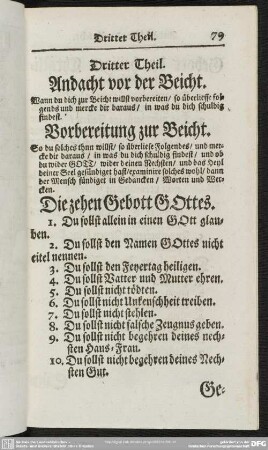 Dritter Theil. 79
Dritter Theil.
Andacht vor der Beicht.
Wann du dich zur Beicht willst vorbereiten/ so überliese fol-
gends und mercke dir daraus/ in was du dich schuldig
findest.
Vorbereitung zur Beicht.
So du solches thun willst/ so überliese Folgendes/ und mer-
cke dir daraus/ in was du dich schuldig findest/ und ob
du wider GOTT/ wider deinen Nechsten/ und das Heyl
deiner Seel gesündiget hast/ examinire solches wohl/ dann
der Mensch sündiget in Gedancken/ Worten und Wer-
cken.
Die zehen Gebott GOttes.
1. Du sollst allein in einen GOtt glau-
ben.
2. Du sollst den Namen GOttes nicht
eitel nennen.
3. Du sollst den Feyertag heiligen.
4. Du sollst Vatter und Mutter ehren.
5. Du sollst nicht tödten.
6. Du sollst nicht Unkeuschheit treiben.
7. Du sollst nicht stehlen.
8. Du sollst nicht falsche Zeugnus geben.
9. Du sollst nicht begehren deines nech-
sten Haus-Frau.
10. Du sollst nicht begehren deines Nech-
sten Gut.
Ge-
DFG